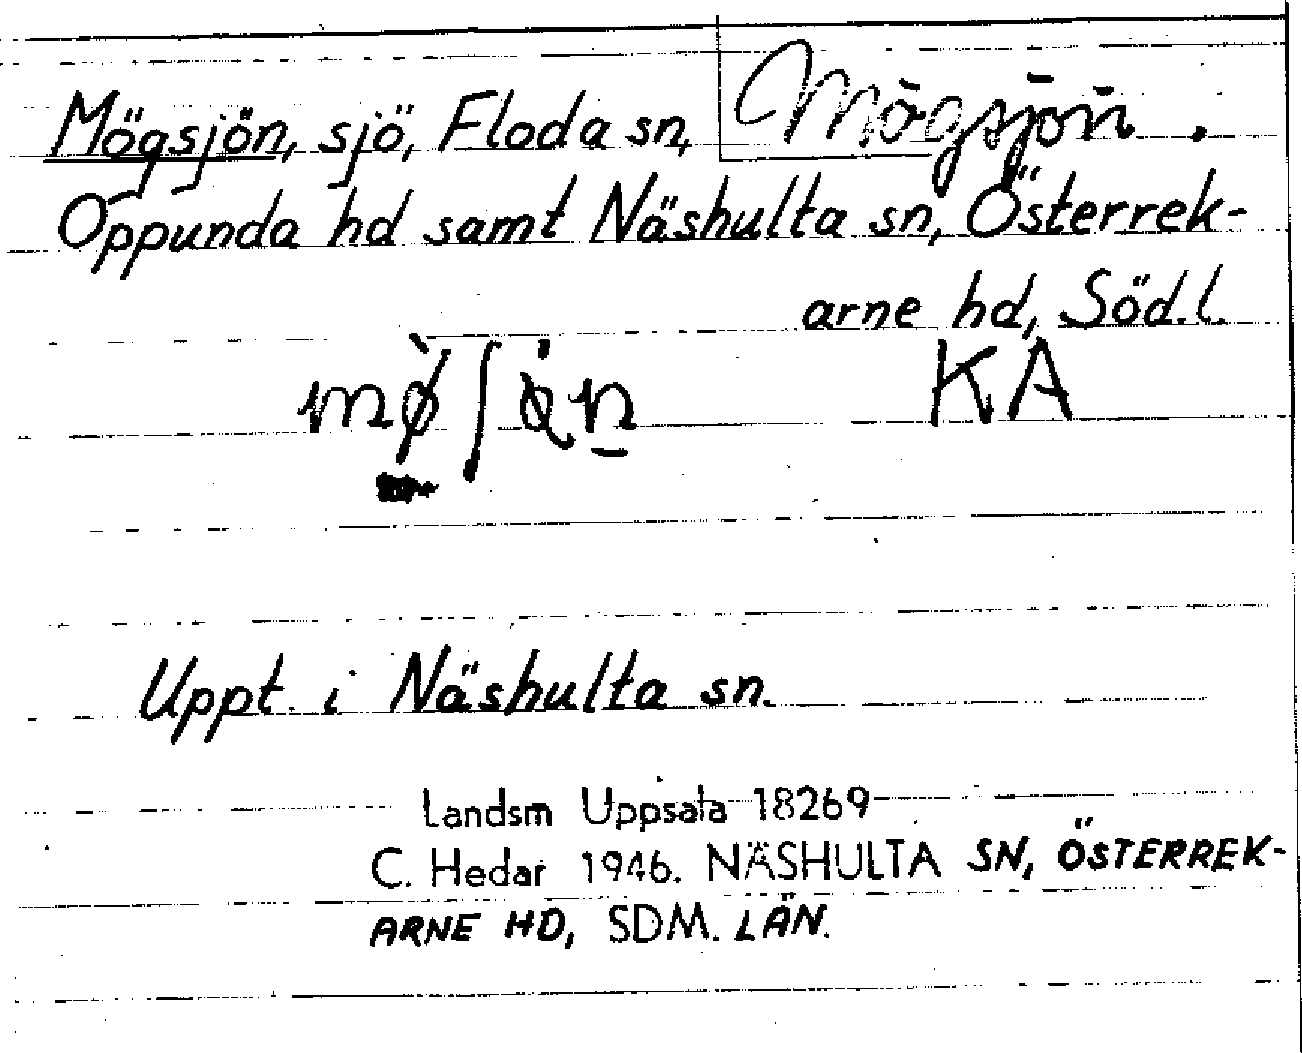 Mögsjön, sjö, Floda sn,
Mögsjön.
Oppunda hd samt Näshulta sn, Österrek-
arne hd, Söd.l.
KA
Uppt. i Näshulta sn.
Landsm Uppsala 18269
C. Hedar 1946. NÄSHULTA SN, ÖSTERREK-
ARNE HD, SDM. LÄN.